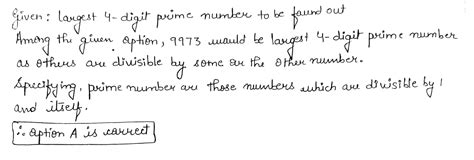 Given : largest 4-digit prime number to be found out
Among the given option, 9973 would be largest 4-digit prime number
as others are divisible by some or the other number.
Specifying, prime number are those numbers which are divisible by 1
and itself.
∴ option A is correct